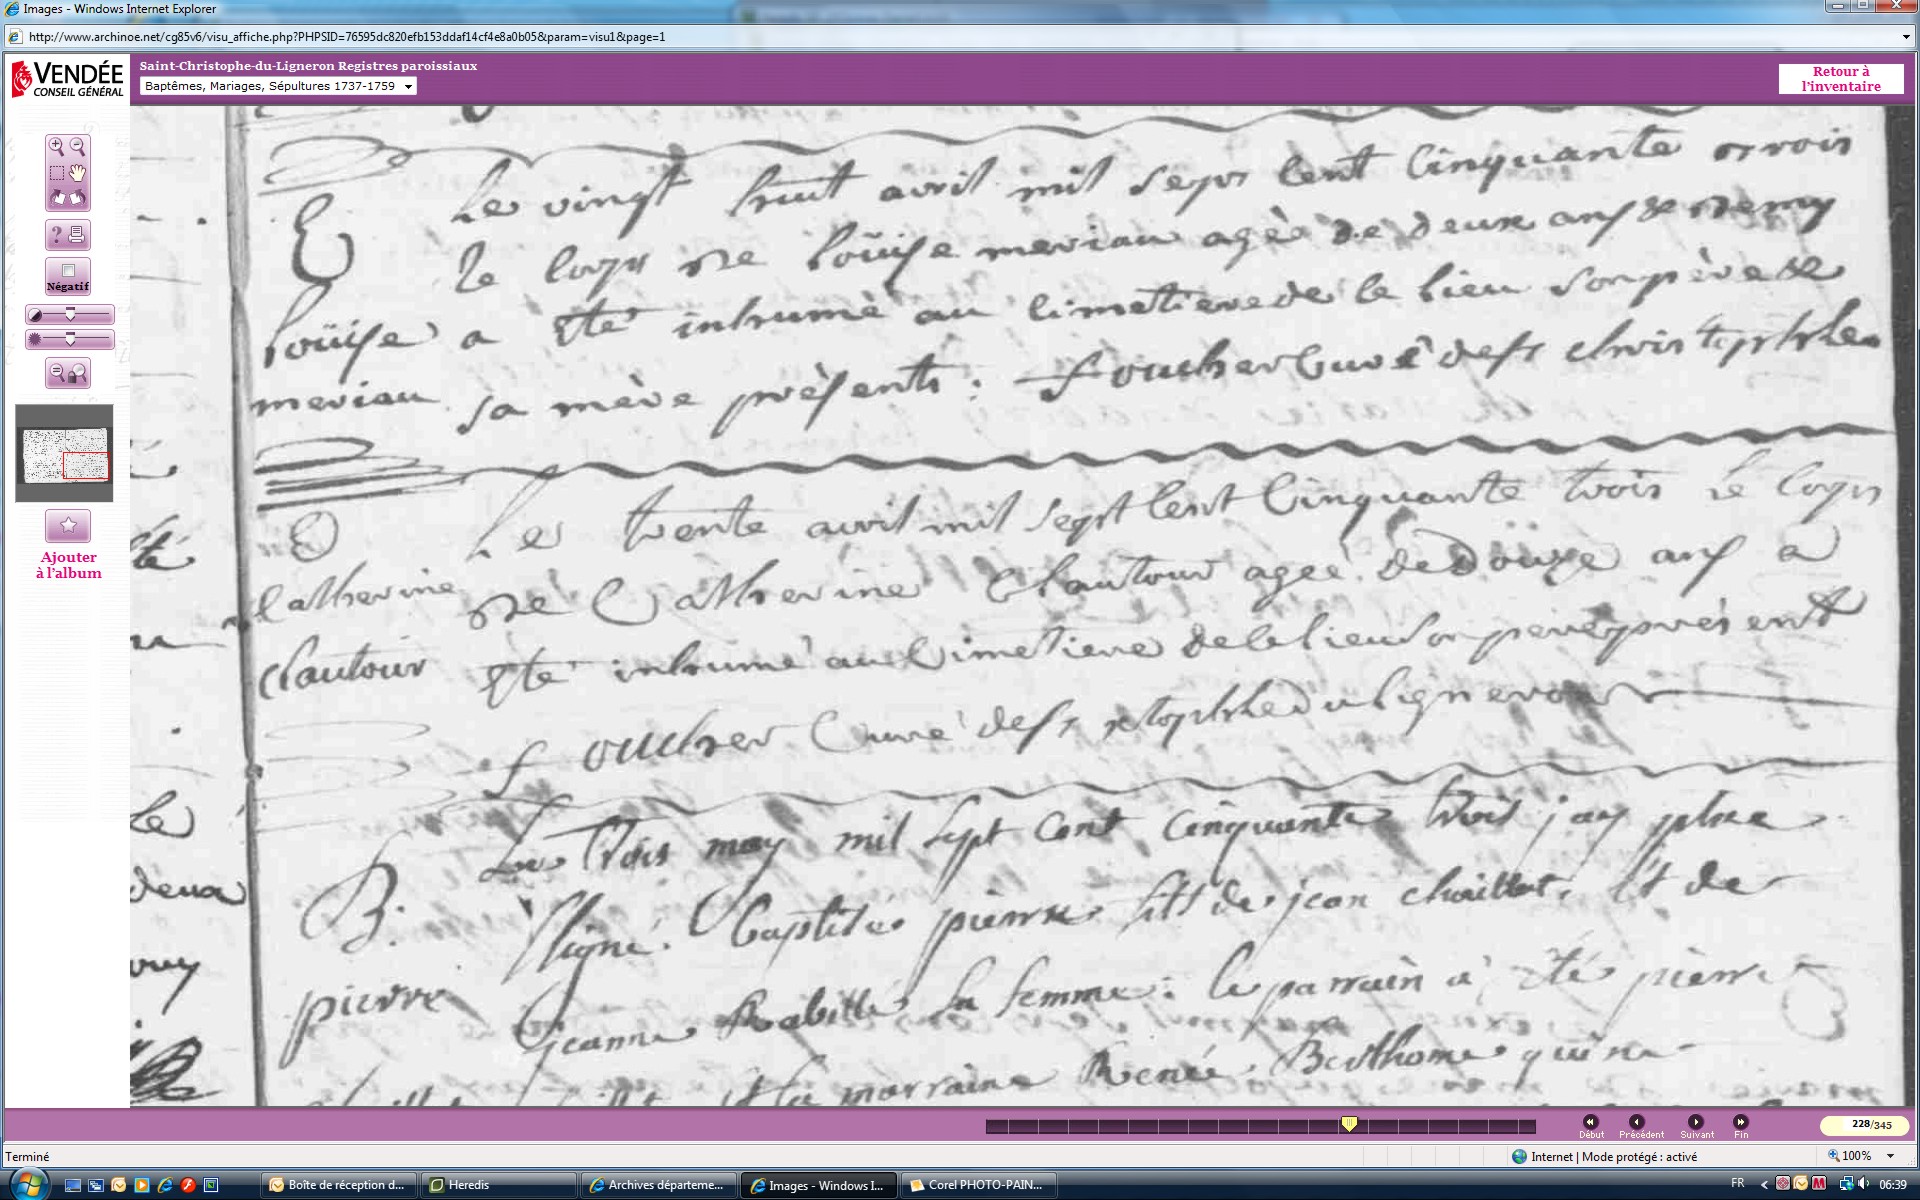 Images - Windows Internet Explorer
http://www.archinoe.net/cg85v6/visu_affiche.php?PHPSID=76595dc820efb153ddaf14cf4e8a0b05&param=visu1&page=1
VENDÉE
CONSEIL GÉNÉRAL
Saint-Christophe-du-Ligneron Registres paroissiaux
Baptêmes, Mariages, Sépultures 1737-1759
Retour à
l'inventaire
Négatif
Ajouter
à l'album
Le vingt huit avril mil sept cent Cinquante trois
le corps de loüise meriau agèe de deux ans & demy
a èté inhumè au cimetiere de ce lieu son père &
sa mère prèsents : foucher Curé de st christophhe
loüise
meriau
Le trente avril mil sept cent Cinquante trois le corps
de Catherine Clautour ageè de Douze ans a
èté inhumé au Cimetiere de ce lieu son pere present
foucher Curé de st xtophhe du ligneron
Catherine
Clautour
Le Trois may mil sept cent cinquante trois jay plus
signé Baptisé pierre fils de jean chaillot et de
jeanne Rabillé sa femme : le parrain a été pierre
la marraine Renée Berthome qui ne
B.
pierre
228/345
Début
Précédent
Suivant
Fin
Terminé
Internet | Mode protégé : activé
100%
Boîte de réception d...
Heredis
Archives départeme...
Images - Windows I...
Corel PHOTO-PAIN...
FR
06:39